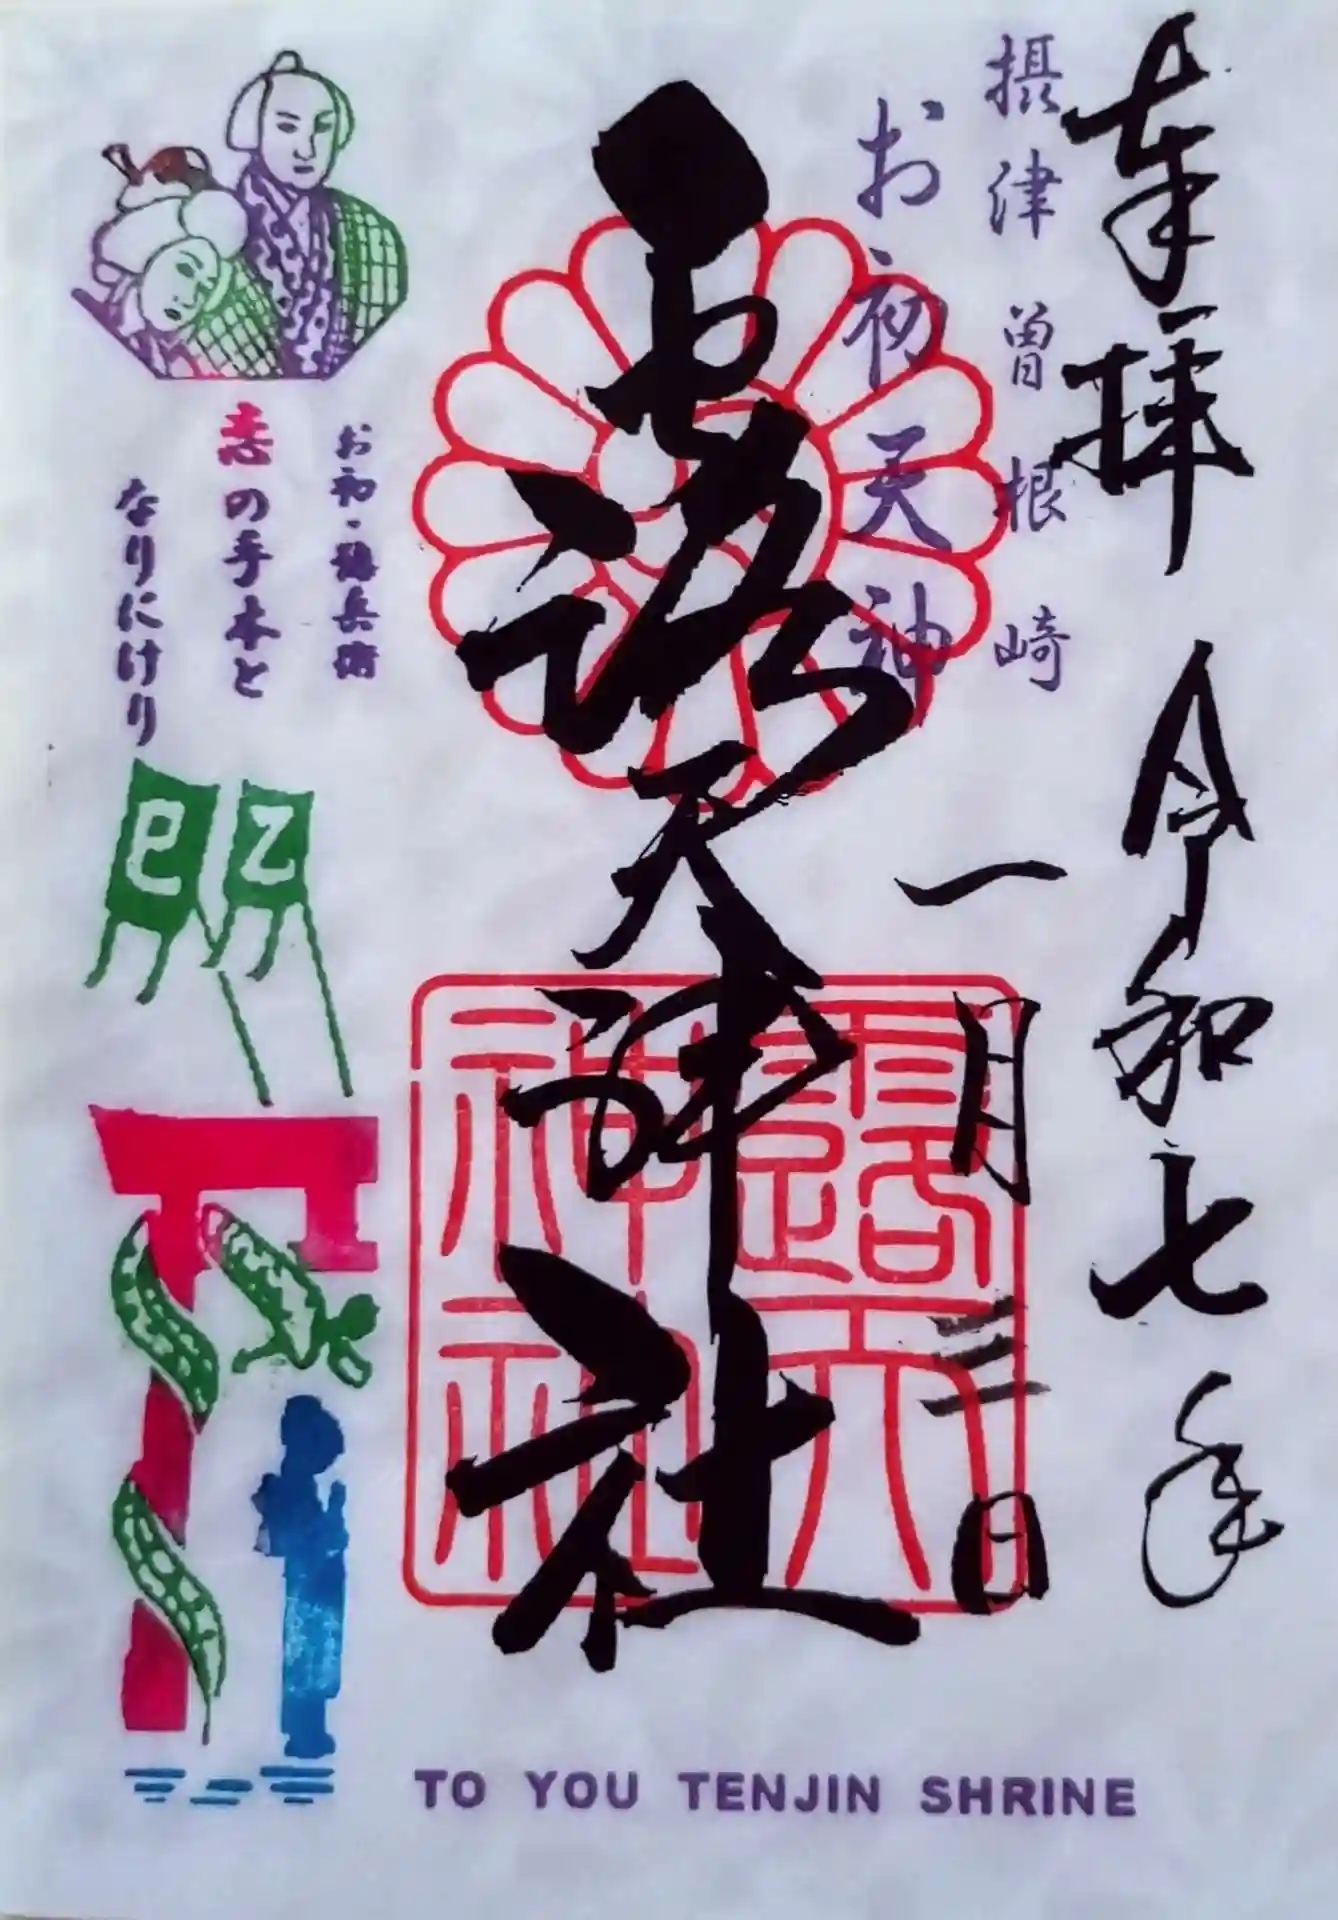 奉拝
令和七年
一月三日
摂津曽根崎
お初天神
露天神社
露天
神社
お初・徳兵衛
恋の手本と
なりにけり
乙
巳
TO YOU TENJIN SHRINE